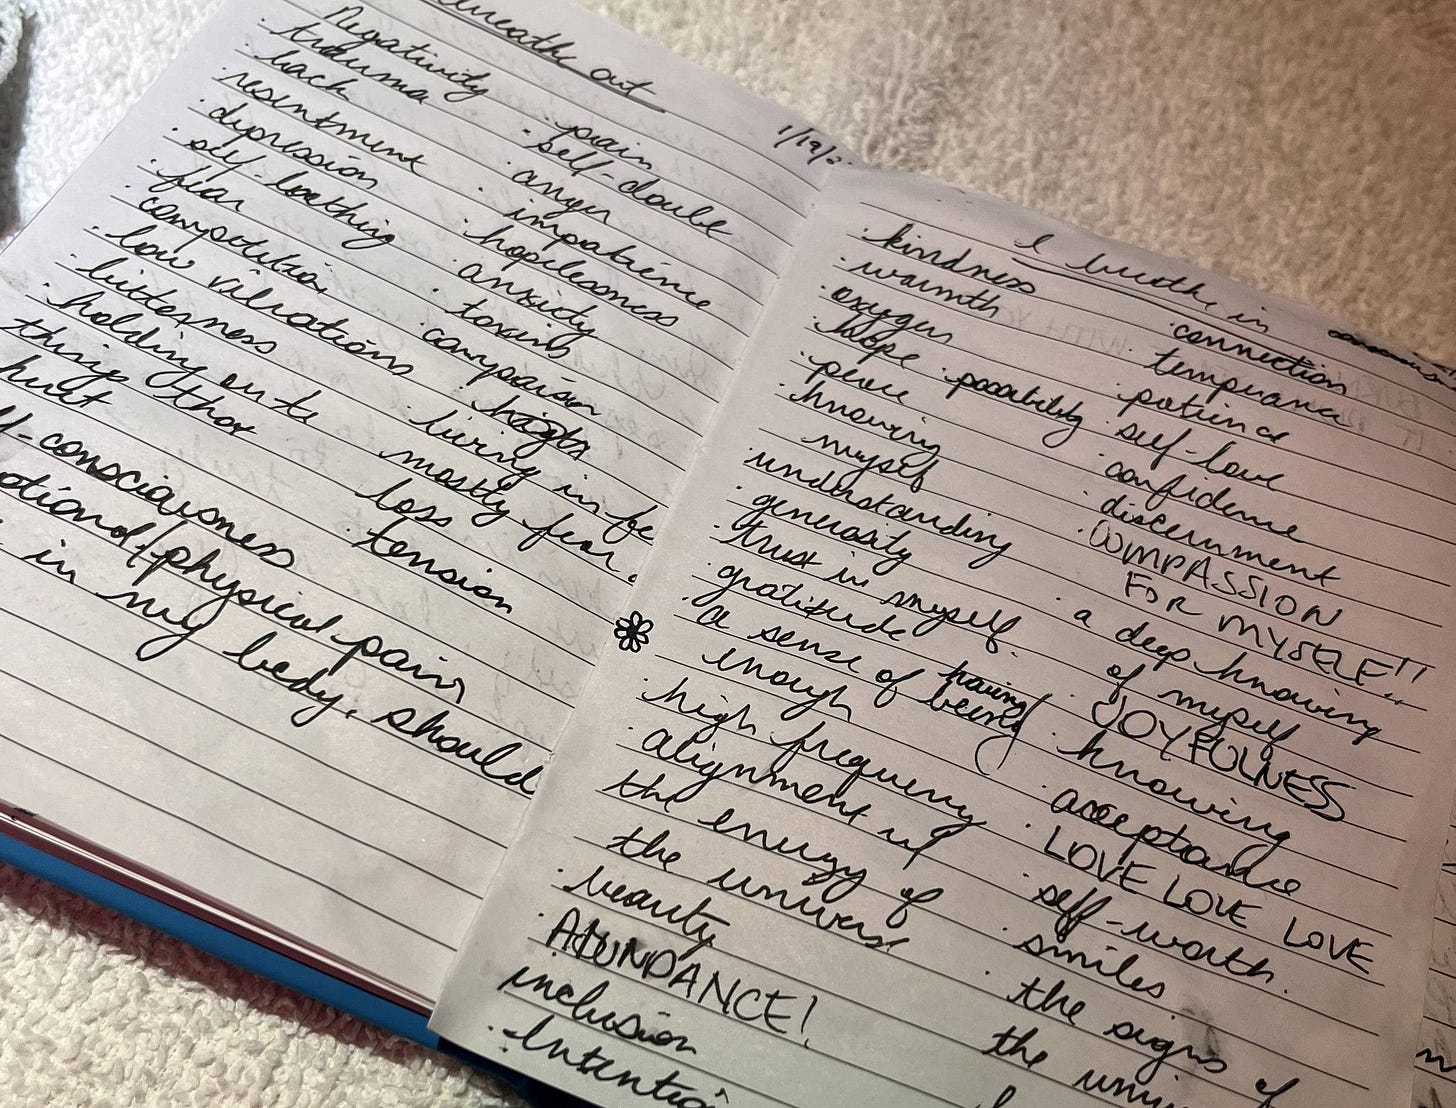 breathe out
· Negativity
· trauma
· lack
· resentment
· depression
· self-loathing
· fear
· competition
· low vibration
· bitterness
· holding on to
things that
hurt
self-consciousness
emotional/physical pain
in my body, should
1/19/2
· pain
· self-doubt
· anger
· impatience
· hopelessness
· anxiety
· toxins
· comparison
· living in fe
mostly fear.
· loss
· tension
I breathe in
· kindness
· warmth
· oxygen
· hope · possibility
· peace
· knowing
myself
· understanding
· generosity
· trust in myself.
· gratitude
· a sense of having/
being
enough
· high frequency
· alignment w/
the energy of
the universe
· beauty
· ABUNDANCE!
inclusion
· Intention
· connection
· temperance
· patience
· self-love
· confidence
· discernment
· COMPASSION
FOR MYSELF!!
· a deep knowing
of myself
· JOYFULNESS
· knowing
· acceptance
· LOVE LOVE LOVE LOVE
· self-worth.
· smiles
· the signs of
the uni